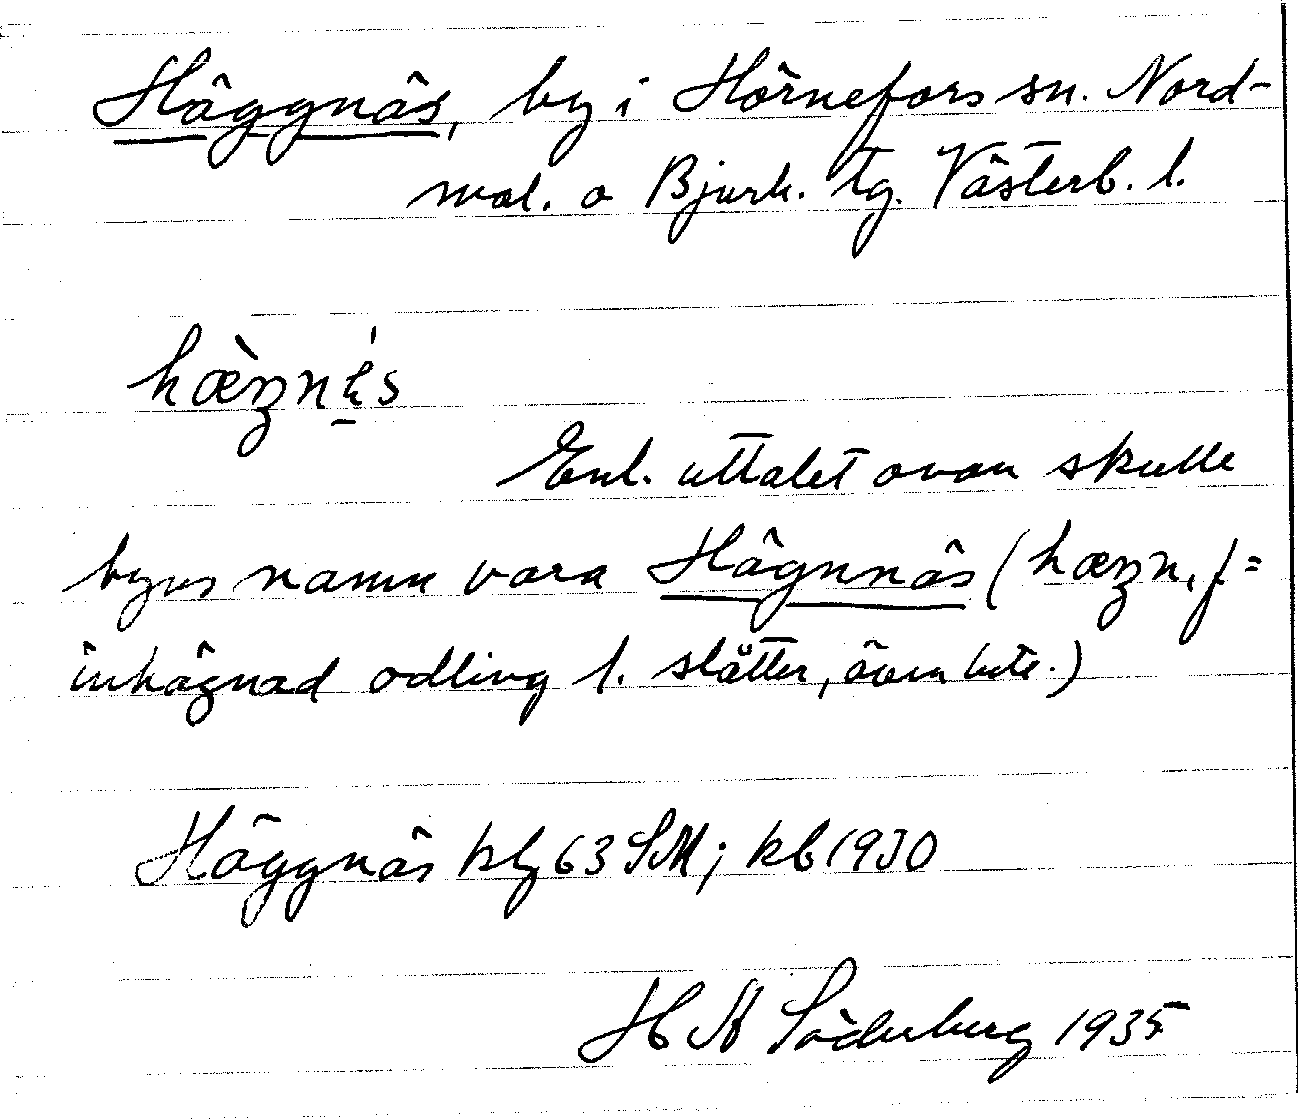 Häggnäs, by i Hörnefors sn. Nord-
mal. o Bjurh. tg. Västerb. l.
hæ̀ŋnés
Enl. uttalet ovan skulle
byns namn vara Hägnnäs (hæŋn, f =
inhägnad odling l. slåtter, även bete.)
Häggnäs kbl 63 SM; kb 1930
H A Söderberg 1935